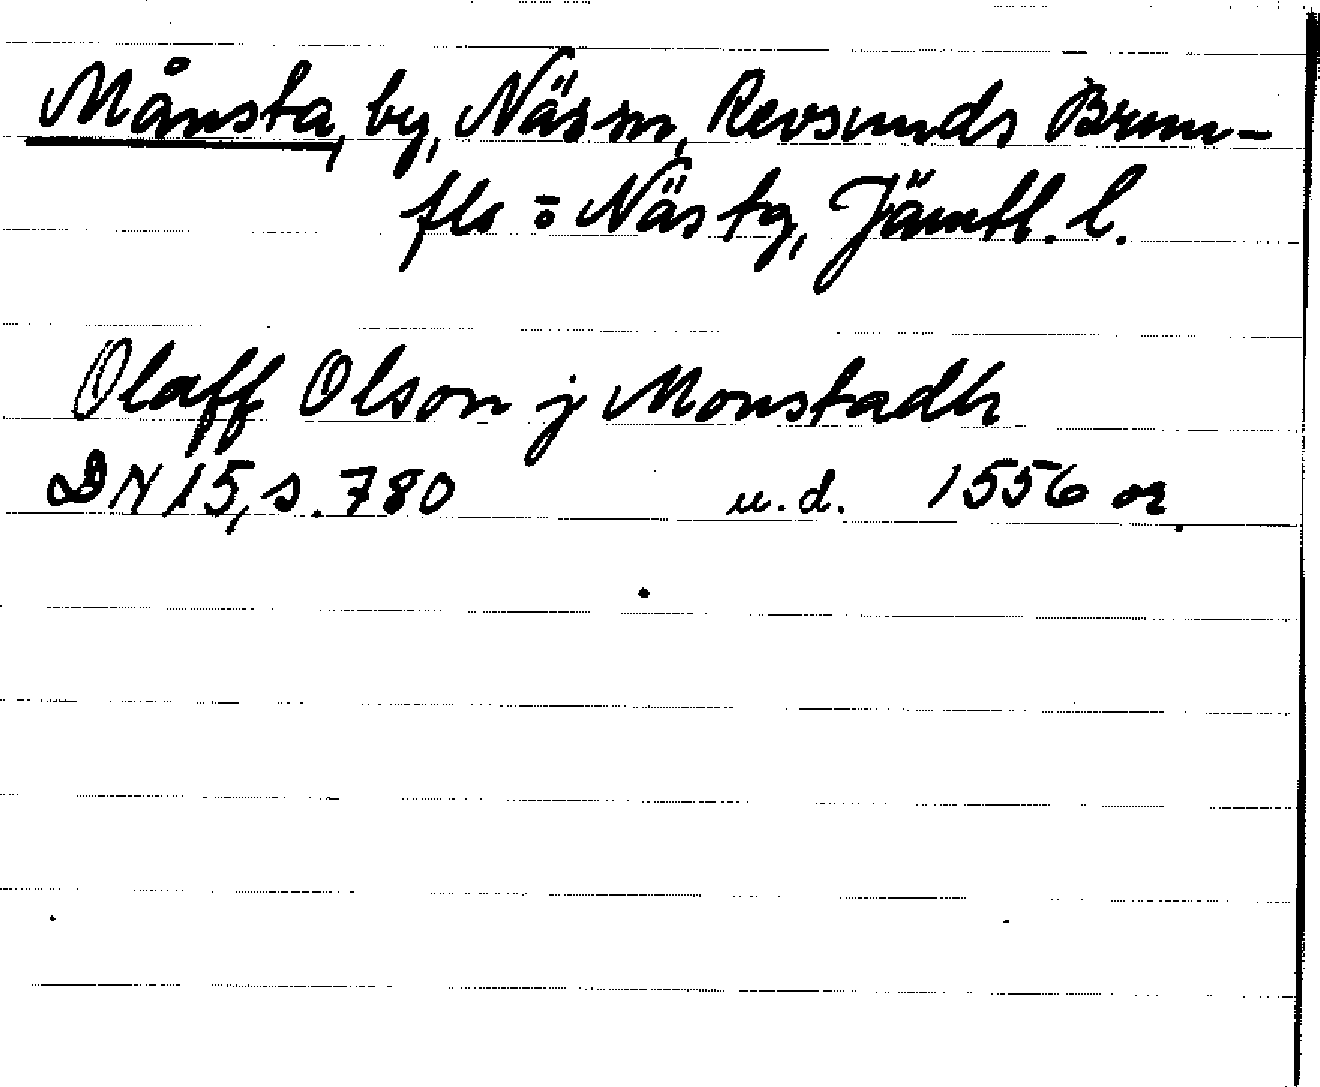 Månsta, by, Näs sn, Revsunds Brun-
flo o Näs tg, Jämtl. l.
Olaff Olson j Monstadh
DN 15, s. 780 u.d. 1556 or